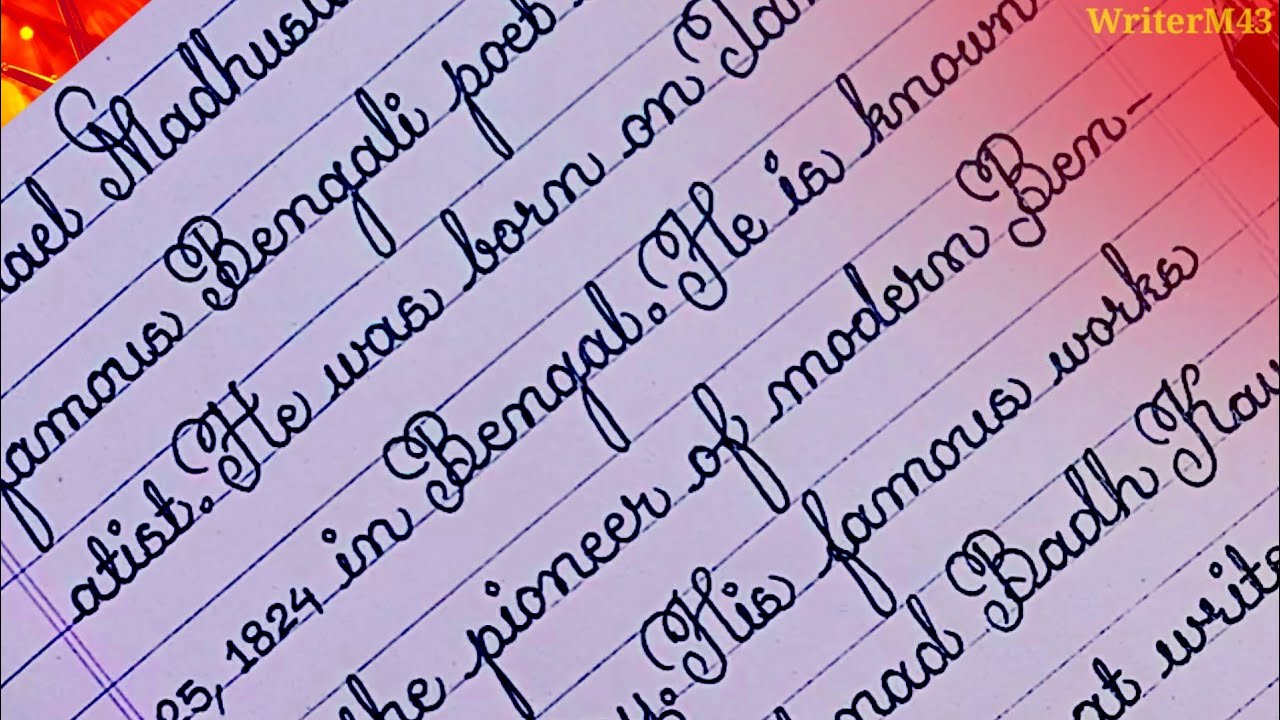 WriterM43
ael Madhusu
famous Bengali poet
atist. He was born on Jan
25, 1824 in Bengal. He is known
the pioneer of modern Ben-
y. His famous works
nad Badh Kav
at write